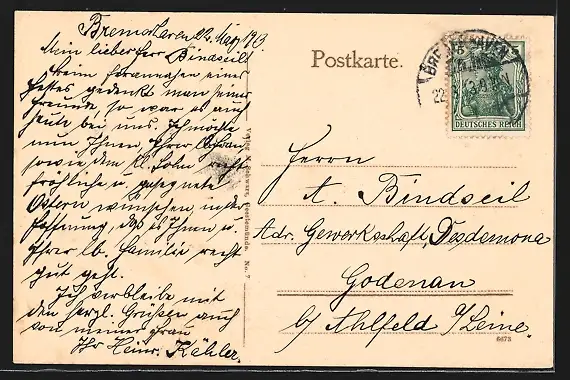 Bremerhaven 22. März 1913
Mein lieber Herr Bindseil
beim herannahen eines
Festes gedenkt man seiner
Freunde so war es auch
heute bei uns. Ich möchte
nun Ihnen, Ihrer Frau
sowie dem kl. Sohn recht
fröhliche u. gesegnete
Ostern wünschen in der
Hoffnung, daß es Ihnen u.
Ihrer lb. Familie recht
gut geht.
Ich verbleibe mit
den herzl. Grüßen auch
von meiner Frau
Ihr Heinr. Kähler.
Postkarte.
BREMERHAVEN
22.3.13.
DEUTSCHES REICH
Herrn
A. Bindseil
Adr. Gewerkschaft „Desdemona
Godenau
b/ Ahlfeld a/Leine.
Geestemünde. No. 7
6673